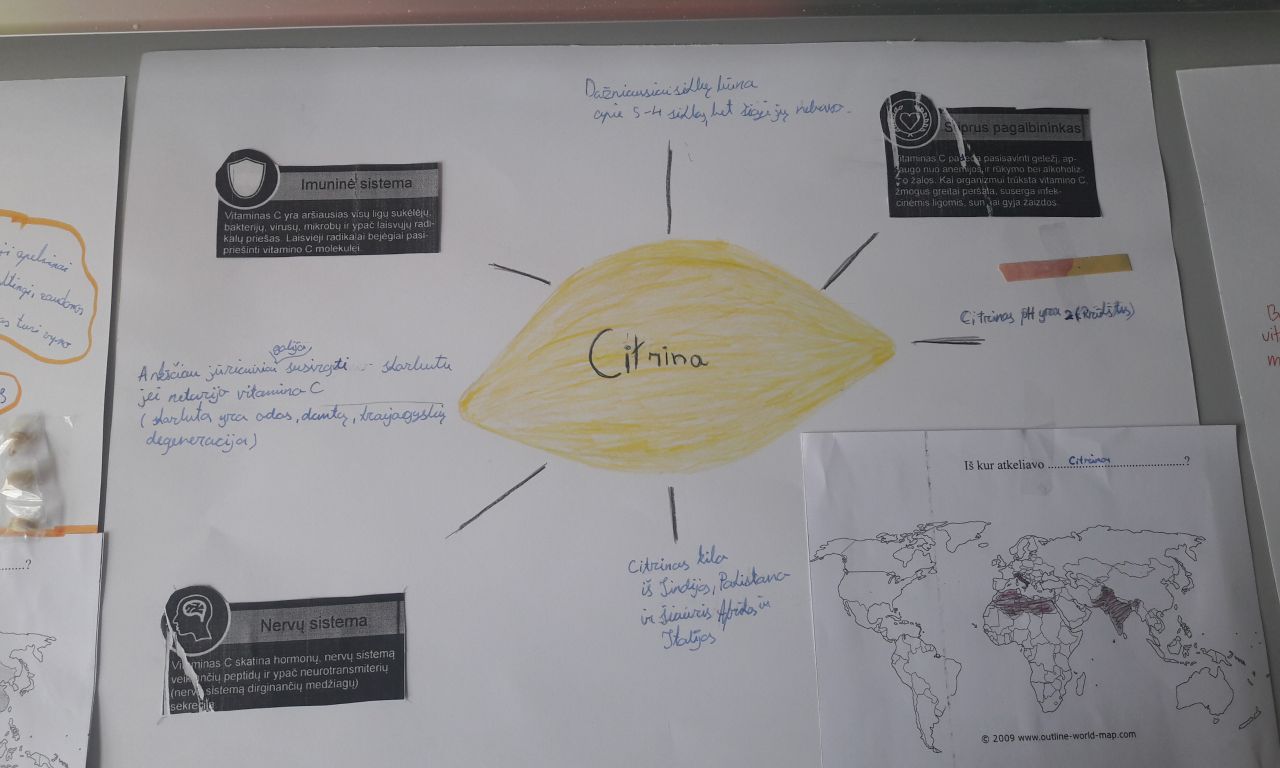 Dažniausiai sėklų būna
apie 3-4 sėklos, bet šioje jų nebuvo.
Imuninė sistema
Vitaminas C yra aršiausias visų ligų sukėlėjų,
bakterijų, virusų, mikrobų ir ypač laisvųjų radi-
kalų priešas. Laisvieji radikalai bejėgiai pasi-
priešinti vitamino C molekulei.
Stiprus pagalbininkas
Vitaminas C padeda pasisavinti geležį, ap-
saugo nuo anemijos ir rūkymo bei alkoholiz-
o žalos. Kai organizmui trūksta vitamino C,
žmogus greitai peršąla, suserga infek-
cinėmis ligomis, sun iai gyja žaizdos.
Citrina
Citrinos pH yra 2 (Rūgštus)
galėjo
Anksčiau jūrininkai susirgti skorbutu
jei neturėjo vitamino C
(skorbutas yra odos, dantų, kraujagyslių
degeneracija)
Citrinos kilo
iš Indijos, Pakistano
ir šiaurės Afrikos ir
Italijos
Nervų sistema
Vitaminas C skatina hormonų, nervų sistemą
veikiančių peptidų ir ypač neurotransmiterių
(nervų sistemą dirginančių medžiagų)
sekreciją
Iš kur atkeliavo Citrinos ?
© 2009 www.outline-world-map.com
apelsinai
raudonos
turi vyno
?